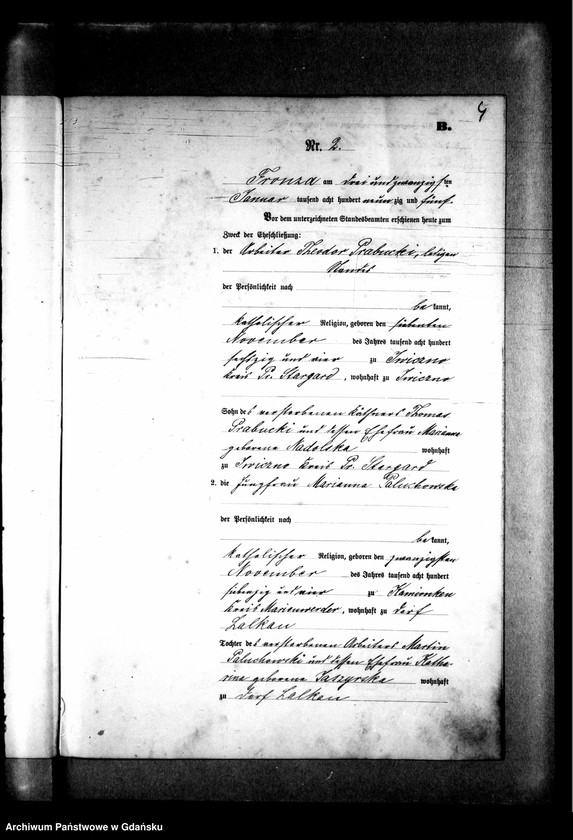 9
B.
Nr. 2.
Fronza am drei und zwanzigsten
Januar tausend acht hundert neunzig und fünf.
Vor dem unterzeichneten Standesbeamten erschienen heute zum
Zweck der Eheschließung:
1. der Arbeiter Theodor Prabucki, ledigen
Standes
der Persönlichkeit nach
be kannt,
katholischer Religion, geboren den siebenten
November des Jahres tausend acht hundert
sechzig und vier zu
Kreis Pr. Stargard, wohnhaft zu
Sohn des verstorbenen Käthners Thomas
Prabucki und dessen Ehefrau Marianna
geborene Nadolska wohnhaft
zu Kreis Pr. Stargard
2. die Jungfrau Marianna Paluchowska
der Persönlichkeit nach
be kannt,
katholischer Religion, geboren den zwanzigsten
November des Jahres tausend acht hundert
siebenzig und vier zu Kamionken
Kreis Marienwerder, wohnhaft zu Dorf
Lalkau
Tochter des verstorbenen Arbeiters Martin
Paluchowski und dessen Ehefrau Katha-
rina geborene wohnhaft
zu Dorf Lalkau
Archiwum Państwowe w Gdańsku